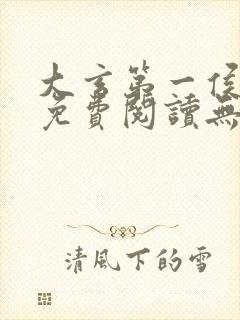 大言第一侯
免費閱讀無
清風下的雪